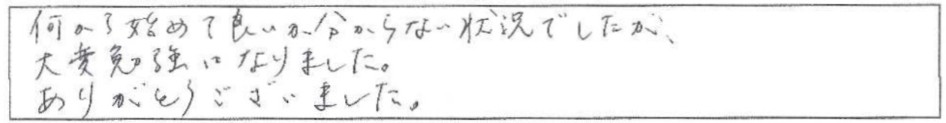 何から始めて良いか分からない状況でしたが、
大変勉強になりました。
ありがとうございました。